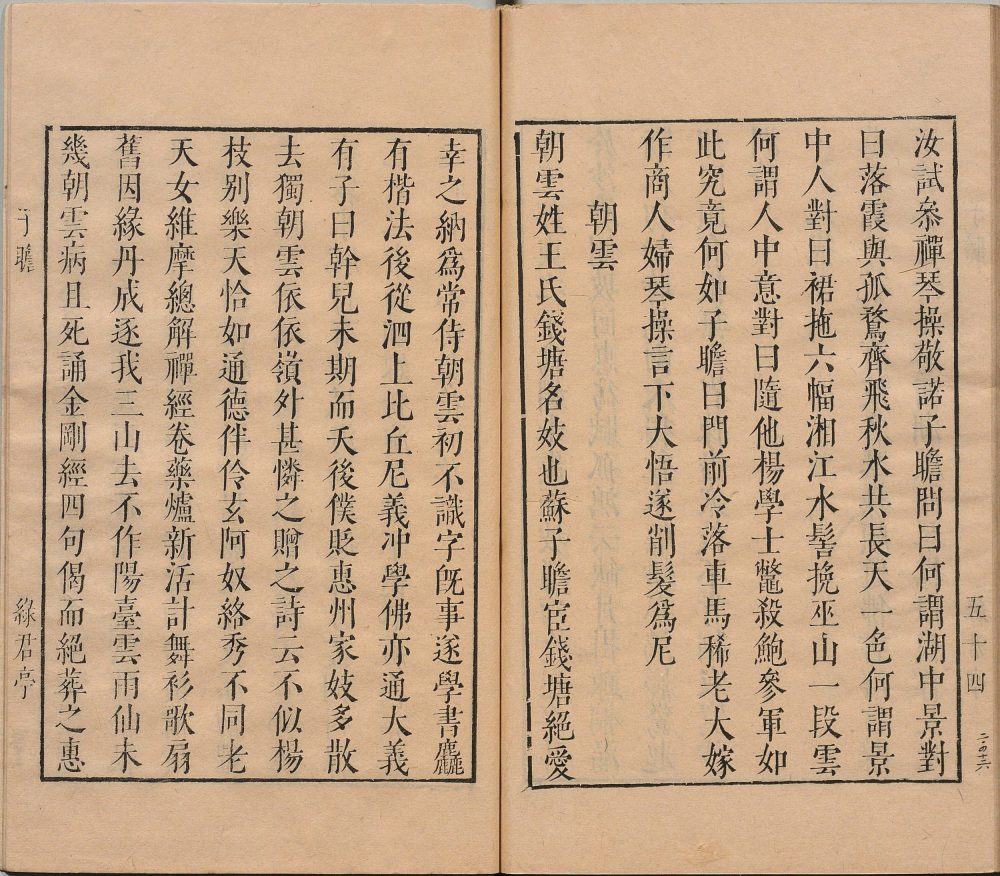 汝試叅禪琴操敬諾子瞻問曰何謂湖中景對
曰落霞與孤鶩齊飛秋水共長天一色何謂景
中人對曰裙拖六幅湘江水髻挽巫山一段雲
何謂人中意對曰隨他楊學士鼈殺鮑參軍如
此究竟何如子瞻曰門前冷落車馬稀老大嫁
作商人婦琴操言下大悟遂削髮爲尼
朝雲
朝雲姓王氏錢塘名妓也蘇子瞻宦錢塘絕愛
五十四
幸之納爲常侍朝雲初不識字旣事遂學書麤
有楷法後從泗上比丘尼義冲學佛亦通大義
有子曰幹兒未期而夭後僕貶惠州家妓多散
去獨朝雲依依嶺外甚憐之贈之詩云不似楊
枝别樂天恰如通德伴伶玄阿奴絡秀不同老
天女維摩總解禪經卷藥爐新活計舞衫歌扇
舊因緣丹成逐我三山去不作陽臺雲雨仙未
幾朝雲病且死誦金剛經四句偈而絕葬之惠
子瞻
綠君亭